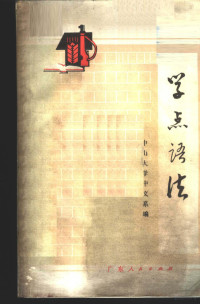 学点语法
中山大学中文系编
广东人民出版社